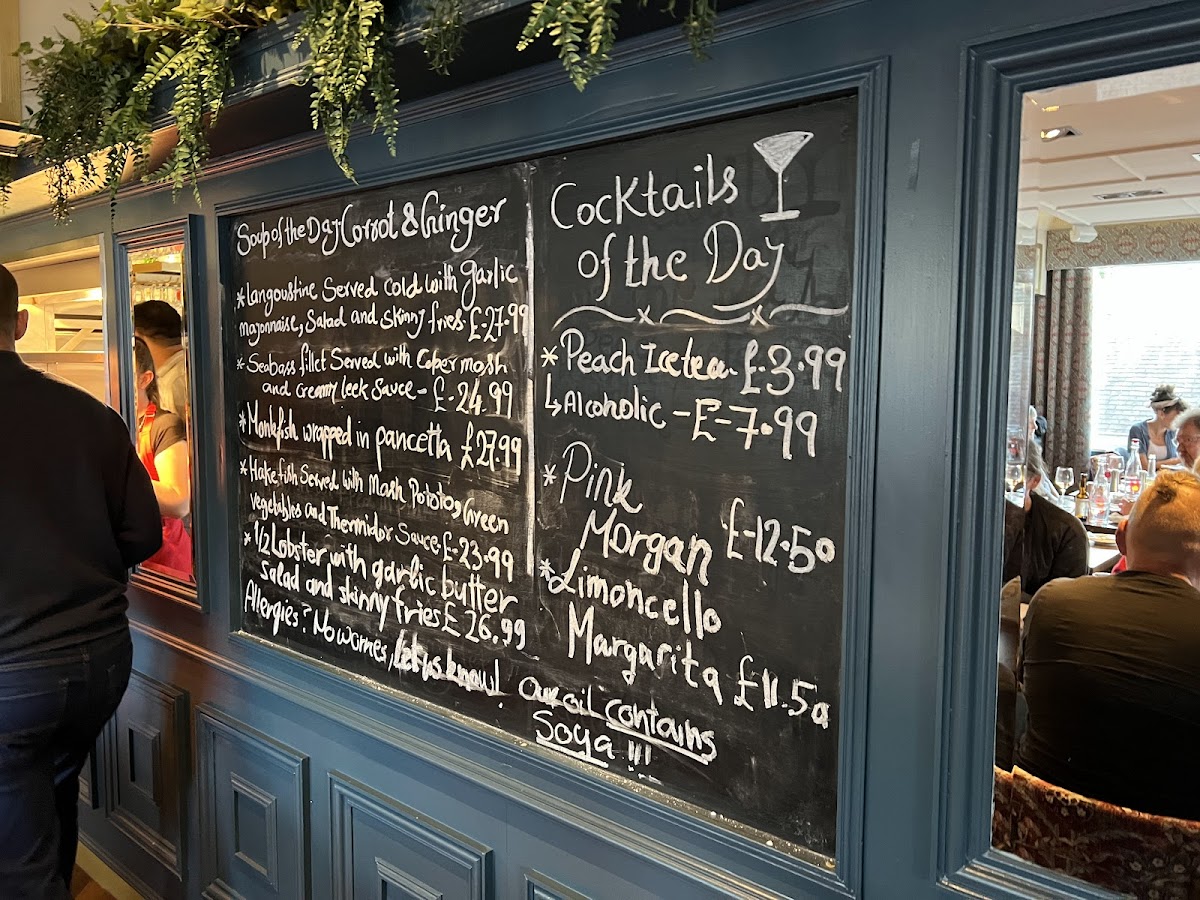 Soup of the Day Corrot & Ginger
*Langoustine Served cold with garlic
mayonnaise, Salad and Skinny fries £-27.99
*Seabass fillet Served with Caper mash
and creamy leek Sauce - £-24.99
*Monkfish wrapped in pancetta £27.99
*Hake fish Served with Mash Potatos, Green
vegetables and Thermidor Sauce £-23.99
*1/2 Lobster with garlic butter
Salad and skinny fries £26.99
Allergies? No worries, let us know!
Our oil contains
Soya !!!
Cocktails
of the Day
*Peach Ice tea £-3.99
↳Alcoholic - £-7.99
*Pink
Morgan £-12.50
*Limoncello
Margarita £11.50